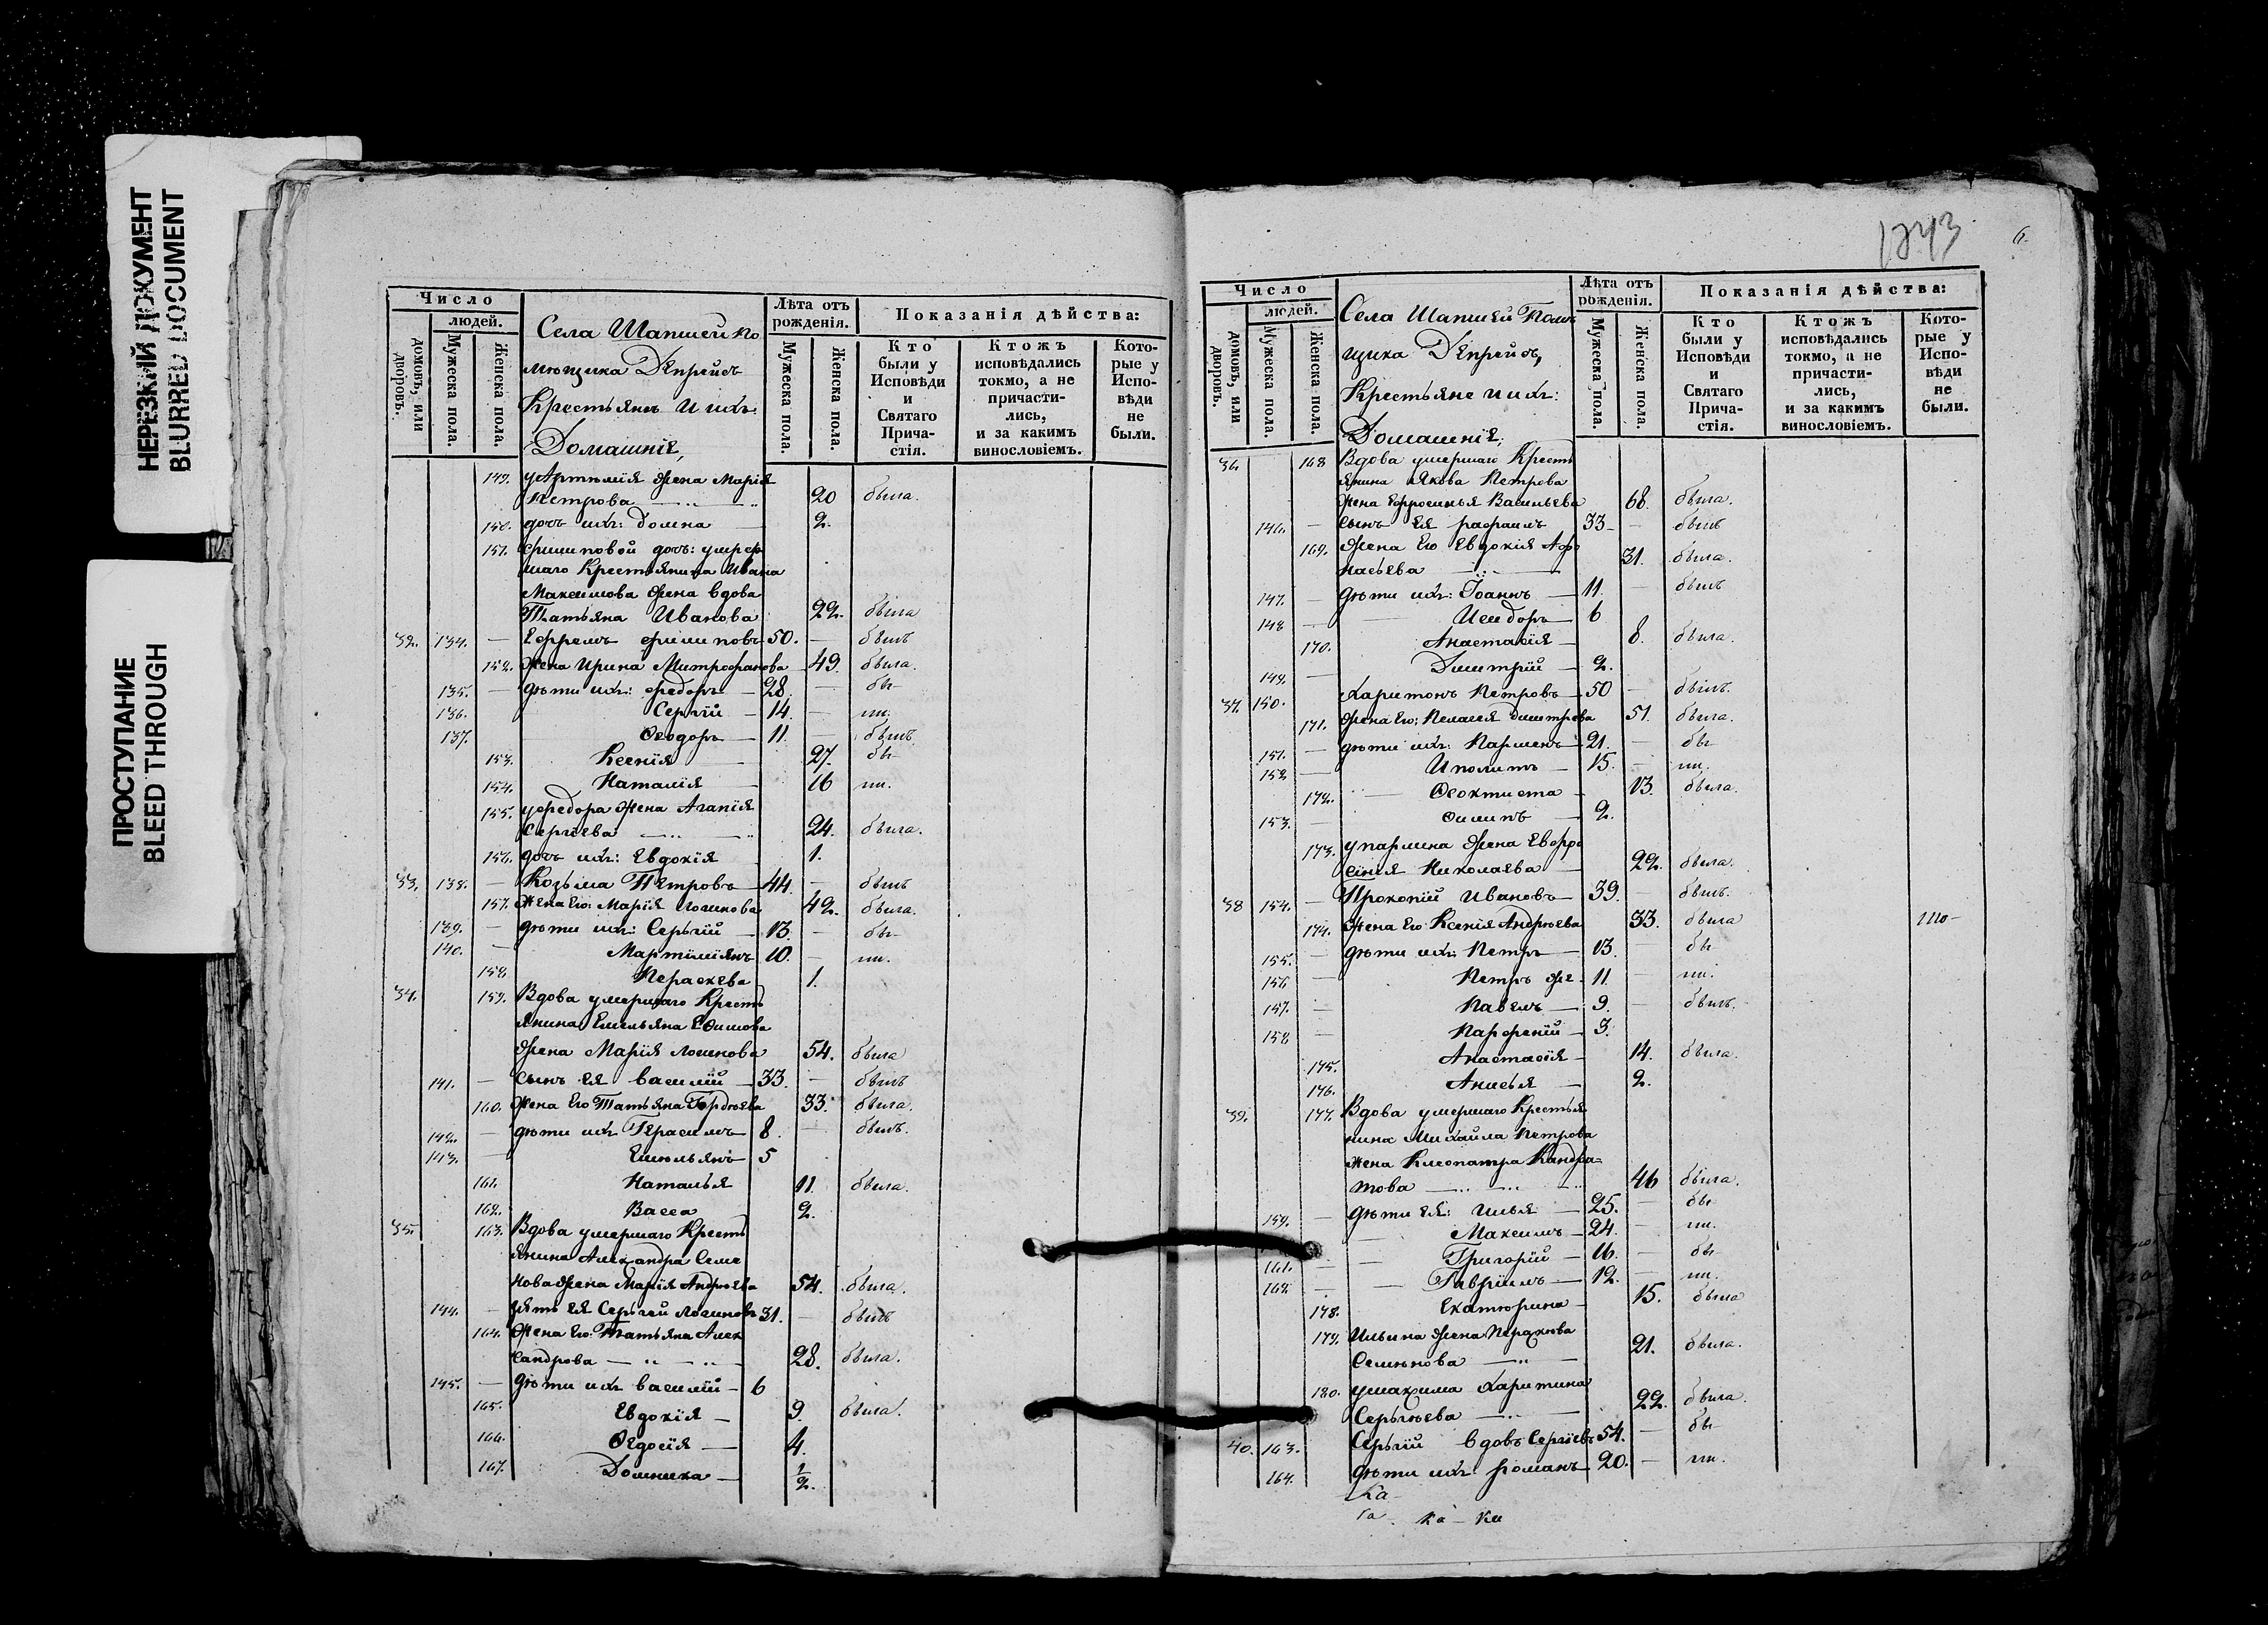 НЕРЕЗКИЙ ДОКУМЕНТ
BLURRED DOCUMENT
ПРОСТУПАНИЕ
BLEED THROUGH
Число
людей.
домовъ, или дворовъ.
Мужеска пола.
Женска пола.
Села Шапшей по
мѣщика Депрейсъ
Крестьянъ и ихъ:
Домашнія,
Лѣта отъ рожденія.
Мужеска пола.
Женска пола.
Показанія дѣйства:
Кто были у Исповѣди и Святаго Причастія.
Ктожъ исповѣдались токмо, а не причастились, и за какимъ винословіемъ.
Которые у Исповѣди не были.
149. у Артемія жена Марія
Петрова 20 была.
150. дочь ихъ: Домна 2.
151. Филиповой дочь: умер
шаго Крестьянина Ивана
Максимова жена вдова
Татьяна Иванова 22. была
32. 134. — Ефремъ Филиповъ 50. — былъ
152. жена Ирина Митрофанова 49. была.
135. — дѣти ихъ: Федоръ 28 — бы-
136. Сергій 14. — ли.
137. Ѳеодоръ 11. — былъ
153. Ксенія 27. бы-
154. Наталія 16 ли.
155. у Федора жена Агапія
Сергіева 24. была.
156. дочь ихъ: Евдокія 1.
33. 138. — Козьма Петровъ 44. — былъ
157. жена Его: Марія Логинова 42. была.
139. — дѣти ихъ: Сергій 13. — бы-
140. — Мартиміянъ 10. — ли.
158. Пераскева 1.
34. 159. Вдова умершаго Кресть
янина Емельяна Ефимова
жена Марія Логинова 54. была
141. — сынъ Ея Василій 33. — былъ
160. жена Его Татьяна Гордѣева 33. была.
142. — дѣти ихъ Герасимъ 8. — былъ.
143. — Емельянъ 5
161. Наталья 11. была.
162. Васса 2.
35. 163. Вдова умершаго Кресть
янина Александра Семе
нова жена Марія Андрѣева 54. была.
144. — зять ея Сергѣй Логиновъ 31. — былъ
164. жена Его: Татьяна Алек
сандрова 28. была.
145. — дѣти ихъ Василій 6
165. Евдокія 9. была.
166. Ѳедосія 4.
167. Домника ½.
1243
6.
Число
людей.
домовъ, или дворовъ.
Мужеска пола.
Женска пола.
Села Шапшей Помѣ
щика Депрейсъ,
Крестьяне и ихъ:
Домашнія,
Лѣта отъ рожденія.
Мужеска пола.
Женска пола.
Показанія дѣйства:
Кто были у Исповѣди и Святаго Причастія.
Ктожъ исповѣдались токмо, а не причастились, и за какимъ винословіемъ.
Которые у Исповѣди не были.
36. 168 Вдова умершаго Кресть
янина Якова Петрова
жена Ефросинья Васильева 68. была.
146. — сынъ Ея Рафаилъ 33 — былъ
169. жена Его Евдокія Афо
насьева 31. была.
147. — дѣти ихъ: Іоаннъ 11. — былъ
148 — Исидоръ 6
170. Анастасія 8. была.
149. — Димитрій 2.
37. 150. Харитонъ Петровъ 50 — былъ.
171. жена Его: Пелагея Дмитрева 51. была.
151. — дѣти ихъ: Парменъ 21. — бы-
152 — Иполитъ 15. — ли.
172. Ѳеоктиста 13. была.
153. — Филипъ 2.
173. у Пармена жена Евфро
синія Николаева 22. была.
38 154. — Прокопій Ивановъ 39. — былъ.
174. жена Его Ксенія Андрѣева 33. была
155. — дѣти ихъ: Петръ 13. бы
156 — Петръ же 11. — ли.
157. — Павелъ 9. — былъ.
158 — Парфеній 3.
175. Анастасія 14. была.
176. Анисья 2.
39. 177. Вдова умершаго Крестья
нина Михайла Петрова
жена Клеопатра Кандра=
това 46 была.
159. — дѣти ея: Илья 25. — бы
Максимъ 24 — ли.
161. — Григорій 16. — бы
162. — Гавріилъ 12. — ли.
178. Екатерина 15. была
179. Ильина жена Параскева
Семенова 21. была.
180. у Максима Харитина
Сергѣева 22. была.
40. 163. Сергій вдовъ Сергіевъ 54. — бы
164. дѣти ихъ: Романъ 20. — ли.
Ка
ка - ки